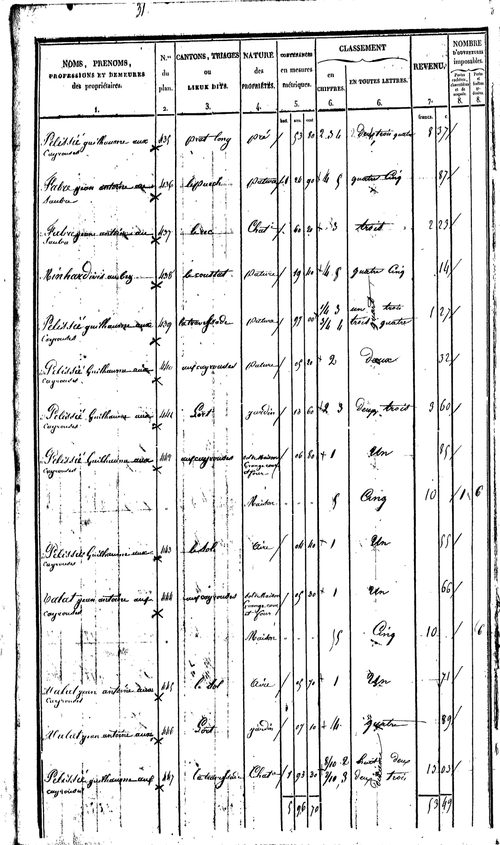 31
NOMS, PRENOMS,
PROFESSIONS ET DEMEURES
des propriétaires.
N.os
du
plan.
CANTONS, TRIAGES
ou
LIEUX DITS.
NATURE
des
PROPRIÉTÉS.
CONTENANCES
en mesures
métriques.
CLASSEMENT
en
CHIFFRES.
EN TOUTES LETTRES.
REVENU.
NOMBRE
D'OUVERTURES
imposables.
1. 2. 3. 4. 5. 6. 6. 7. 8. 8.
francs. c
Pelissié guilhaume aux 435 prat long pré 53 80 2 3 4 deux trois quatre 8 37
Cayrouses
Fabre jean antoine au 436 lepuech pature 24 90 4 5 quatre Cinq 87
Soubro
Fabre jean antoine au 437 Chat 60 20 3 trois 2 23
Soubro
438 pature 19 40 4 5 quatre Cinq 14
Pelissié guilhaume aux 439 pature 97 00 1/4 3 un trois 1 27
Cayrouses 3/4 4 trois quatre
Pelissié Guilhaume aux 440 aux cayrouses pature 05 20 2 Deux 32
Cayrouses
Pelissié Guilhaume aux 441 L'ort jardin 13 60 2 3 deux trois 3 60
cayrouses
Pelissié Guilhaume aux 442 aux cayrouses sol de Maison 06 80 1 Un 85
Cayrouses Grange cour
et four
Maison 5 Cinq 10 1 6
Pelissié Guilhaume aux 443 le sol Aire 04 40 1 Un 55
cayrouses
Malet jean antoine aux 444 aux cayrouses sol de Maison 05 30 1 Un 66
cayrouses Grange cour
et four
Maison 5 Cinq 10 6
Malet jean antoine aux 445 le sol Aire 05 70 1 Un 71
Cayrouses
Malet jean antoine aux 446 L'ort jardin 07 10 4 quatre 89
Pelissié guilhaume aux 447 Chat 1 93 30 8/10 2 huit deux 13 03
cayrouses 2/10 3 deux trois
5 96 70 53 49